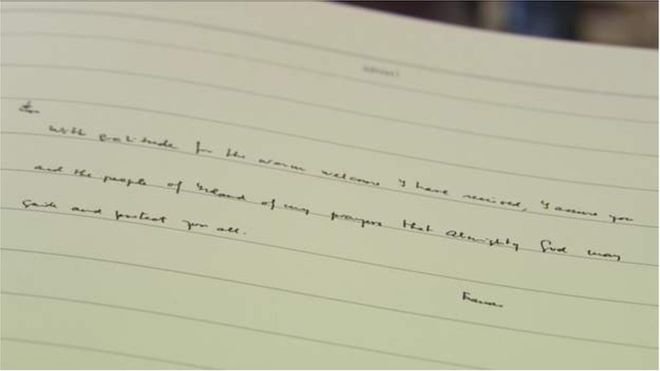 With gratitude for the warm welcome I have received, I assure you
and the people of Ireland of my prayers that Almighty God may
guide and protect you all.
Francis